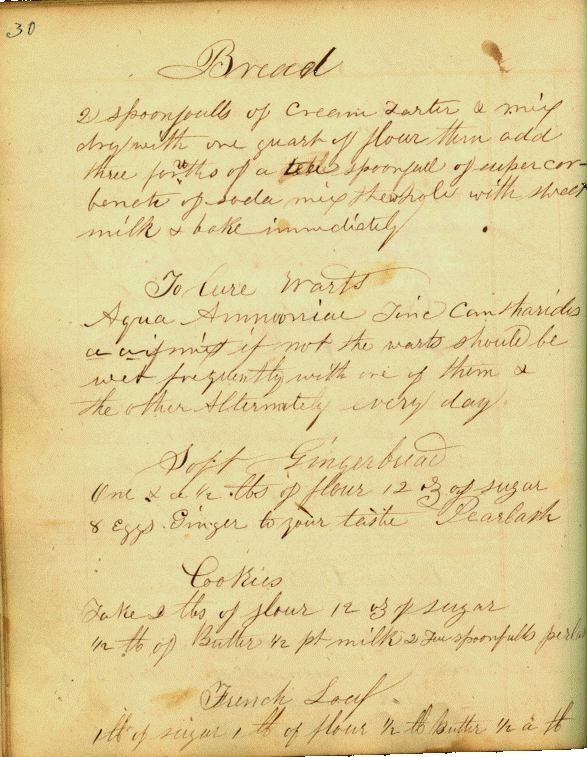 30
Bread
2 spoonfulls of Cream Tarter & mix
dry with one quart of flour then add
three forths of a tea spoonfull of super car-
benate of soda mix the whole with sweet
milk & bake immediately
To Cure Warts
Aqua Ammoniae Tinc Cantharides
a a if mixt if not the warts should be
wet frequently with one of them &
the other Alternately every day.
Soft Gingerbread
One & a 1/2 lbs of flour 12 oz of sugar
8 Eggs. Ginger to your taste Pearlash
Cookies
Take 2 lbs of flour 12 oz of sugar
1/2 lb of Butter 1/2 pt milk 2 Tea spoonfulls
French Loaf
1 lb of sugar 1 lb of flour 1/2 lb Butter 1/2 a lb